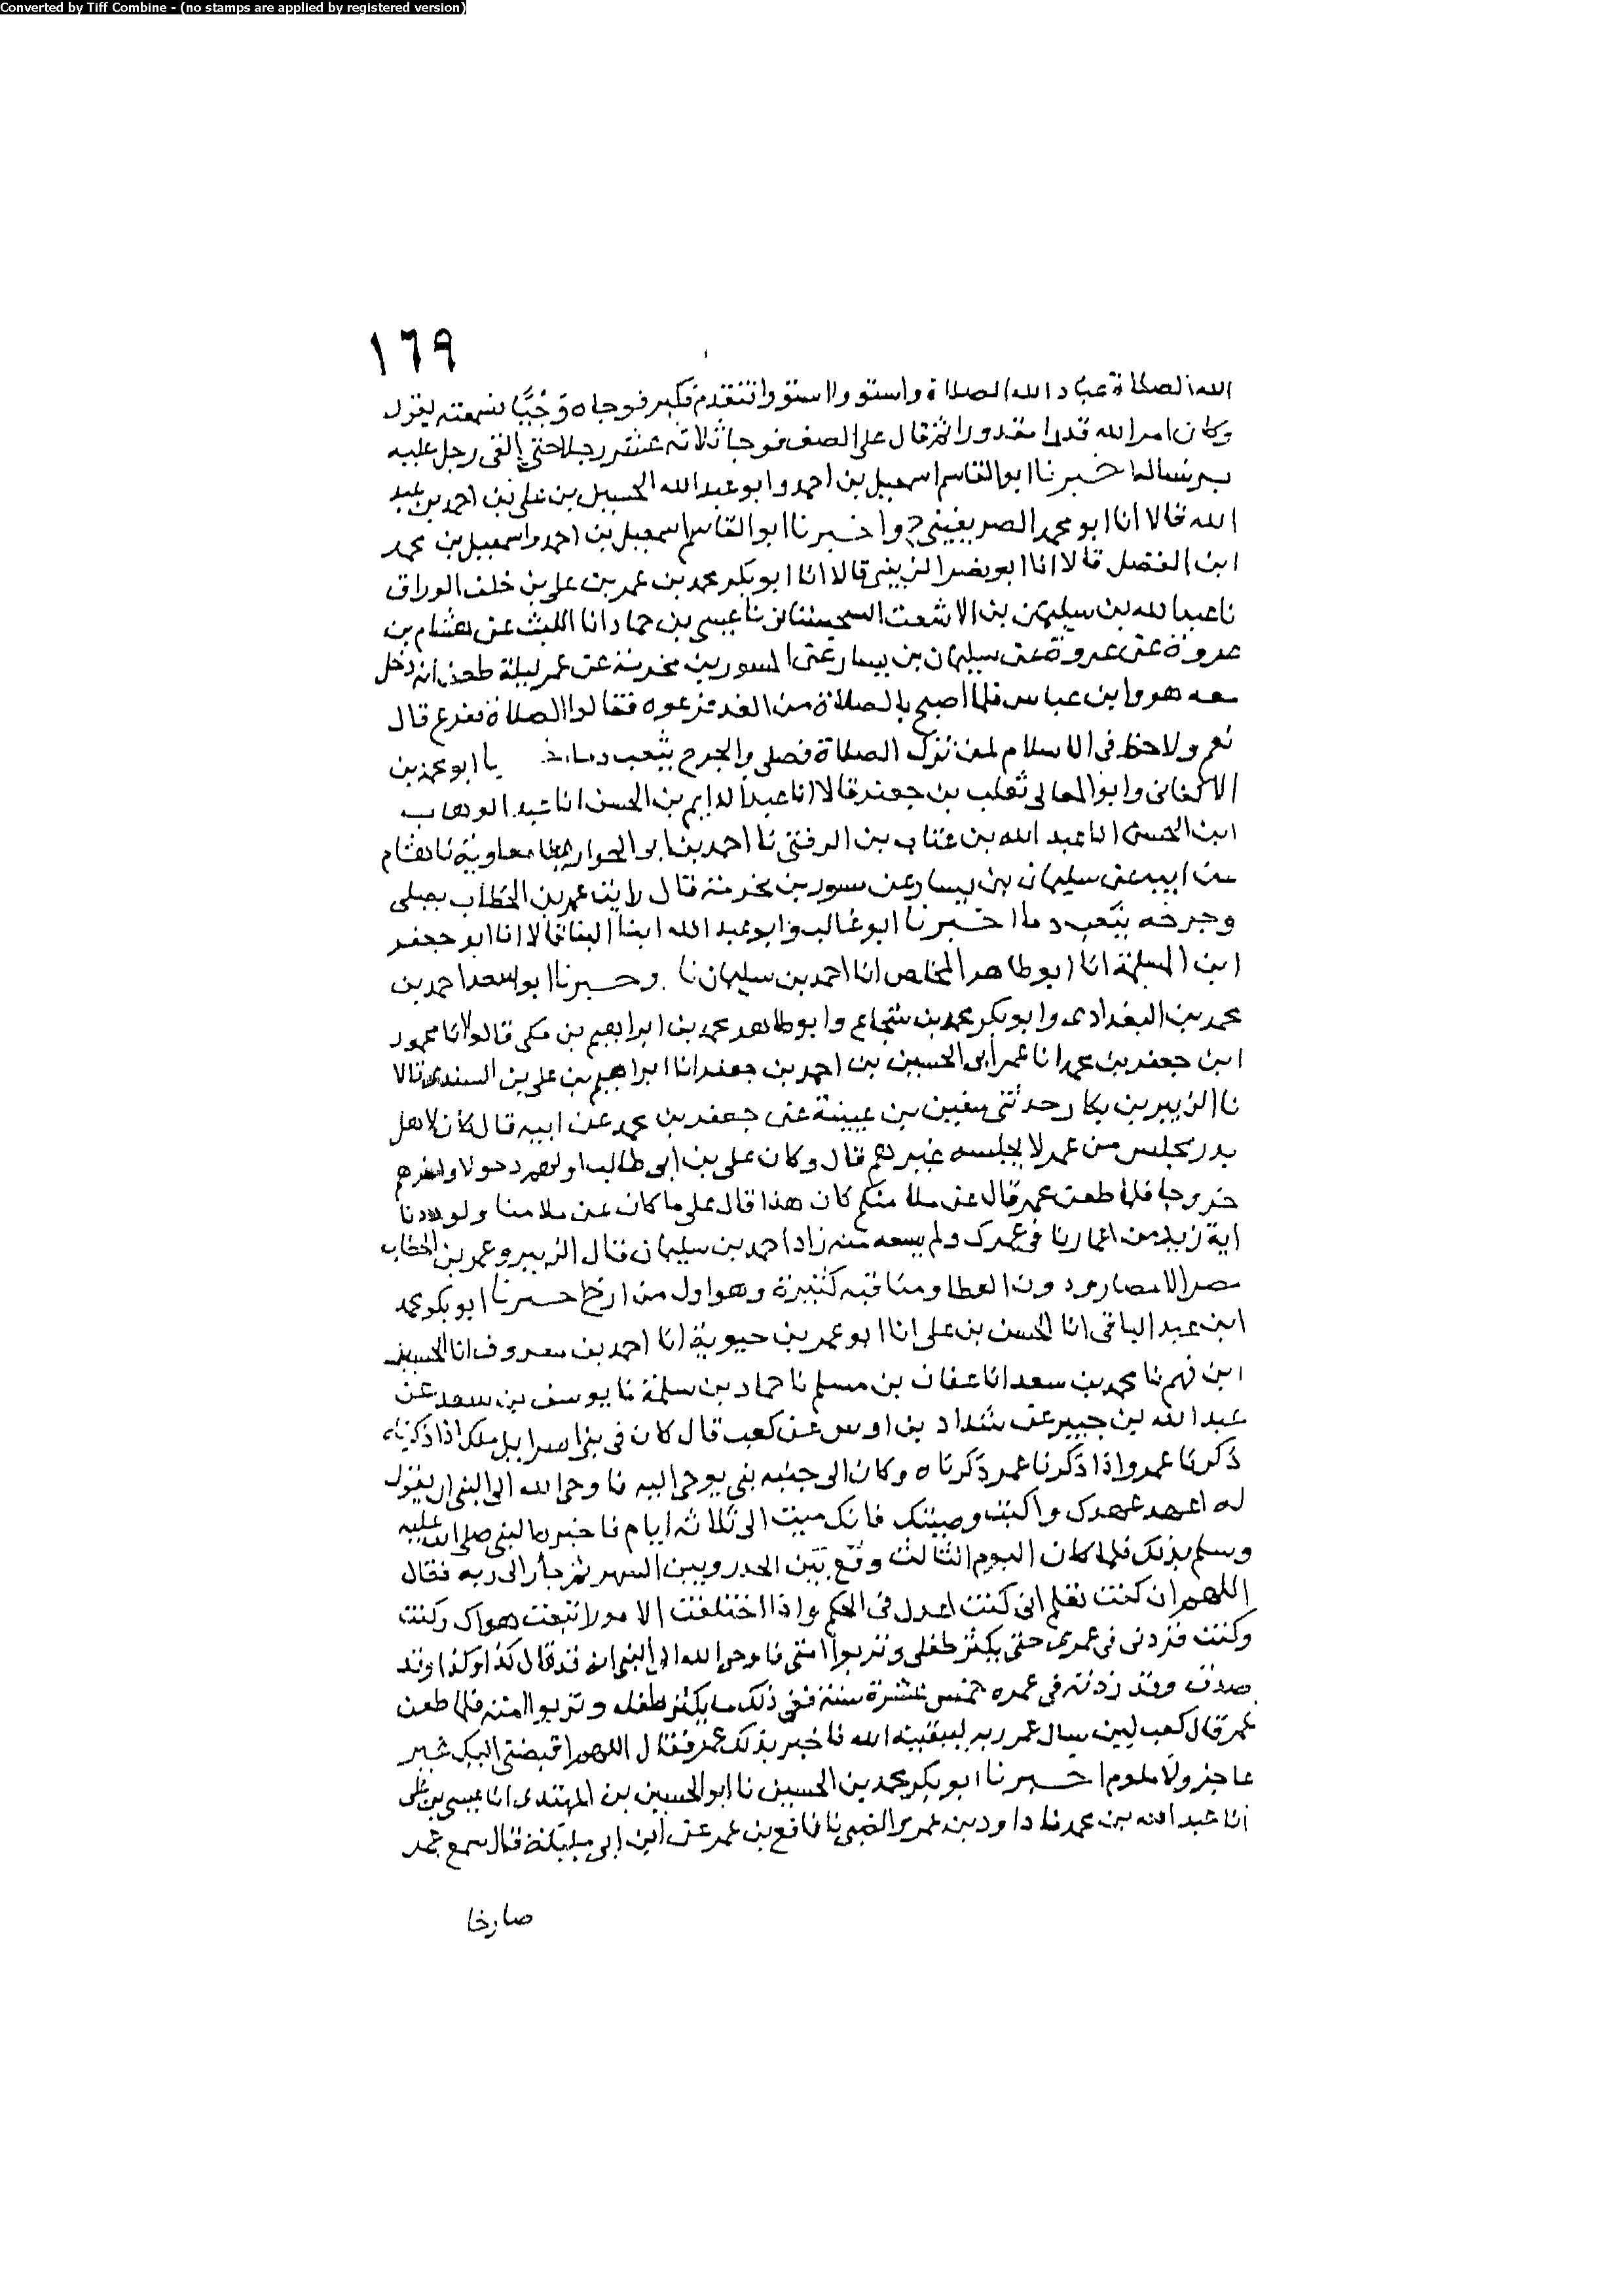 Converted by Tiff Combine - (no stamps are applied by registered version)
١٦٩
الله الصلاة عباد الله الصلاة واستووا استووا فتقدم فكبر فوجاه وجيا فسمعته يقول
وكان امر الله قدرا مقدورا ثم قال على الصف فوجا ثلاثة عشر رجلا حتى القى رجل عليه
برنسا اخبرنا ابو القاسم اسمعيل بن احمد وابو عبد الله الحسين بن علي بن احمد بن عبد
الله قالا انا ابو محمد الصريفيني ح واخبرنا ابو القاسم اسمعيل بن احمد واسمعيل بن محمد
ابن الفضل قالا انا ابو نصر الزينبي قالا انا ابو بكر محمد بن عمر بن علي بن خلف الوراق
نا عبد الله بن سليمان بن الاشعث السجستاني نا عيسى بن حماد انا الليث عن هشام بن
عروة عن عروة عن سليمان بن يسار عن المسور بن مخرمة عن عمر ليلة طعن انه دخل
معه هو وابن عباس فلما اصبح بالصلاة من الغد فزعوه فقالوا الصلاة ففزع قال
نعم ولا حظ في الاسلام لمن ترك الصلاة فصلى والجرح يثعب دما نا ابو محمد بن
الاكفاني وابو المعالي ثعلب بن جعفر قالا انا عبد الدايم بن الحسن انا عبد الوهاب
ابن الحسن انا عبد الله بن عتاب بن الزفتي نا احمد بن ابي الحواري نا معاوية نا هشام
عن ابيه عن سليمان بن يسار عن مسور بن مخرمة قال رايت عمر بن الخطاب يصلي
وجرحه يثعب دما اخبرنا ابو غالب وابو عبد الله ابنا البنا قالا انا ابو جعفر
ابن المسلمة انا ابو طاهر المخلص انا احمد بن سليمان نا واخبرنا ابو سعد احمد بن
محمد بن البغدادي وابو بكر محمد بن شجاع وابو طاهر محمد بن ابراهيم بن مكي قالوا انا محمود
ابن جعفر بن محمد انا عم ابي الحسين بن احمد بن جعفر انا ابراهيم بن علي بن السندي قالا
نا الزبير بن بكار حدثني سفين بن عيينة عن جعفر بن محمد عن ابيه قال كان لاهل
بدر مجلس من عمر لا يجلسه غيرهم قال وكان علي بن ابي طالب اولهم دخولا واخرهم
خروجا فلما طعن عمر قال عن ملا منكم كان هذا قال علي ما كان عن ملا منا ولوددنا
انه زيد من اعمارنا في عمرك ولم يسعه منه زاد احمد بن سليمان قال الزبير وعمر بن الخطاب
مصر الامصار ودون العطا ومناقبه كثيرة وهو اول من ارخ اخبرنا ابو بكر محمد
ابن عبد الباقي انا الحسن بن علي انا ابو عمر بن حيوية انا احمد بن معروف انا الحسين
ابن فهم نا محمد بن سعد انا عفان بن مسلم نا حماد بن سلمة نا يوسف بن سعد عن
عبد الله بن جبير عن شداد بن اوس عن كعب قال كان في بني اسرايل ملك اذا ذكرناه
ذكرنا عمر واذا ذكرنا عمر ذكرناه وكان الى جنبه نبي يوحى اليه فاوحى الله الى النبي ان يقول
له اعهد عهدك واكتب وصيتك فانك ميت الى ثلاثة ايام فاخبره النبي صلى الله عليه
وسلم بذلك فلما كان اليوم الثالث وقع بين الجدر وبين السرير ثم جأر الى ربه فقال
اللهم ان كنت تعلم اني كنت اعدل في الحكم واذا اختلفت الامور اتبعت هواك وكنت
وكنت فزدني في عمري حتى يكبر طفلي وتربوا امتي فاوحى الله الى النبي انه قد قال كذا وكذا وقد
صدق وقد زدته في عمره خمس عشرة سنة ففي ذلك ما يكبر طفله وتربوا امته فلما طعن
عمر قال كعب ليين سال عمر ربه ليبقينه الله فاخبر بذلك عمر فقال اللهم اقبضني اليك غير
عاجز ولا ملوم اخبرنا ابو بكر محمد بن الحسين نا ابو الحسين بن المهتدي انا عيسى بن علي
انا عبد الله بن محمد نا داود بن عمرو الضبي نا نافع بن عمر عن ابن ابي مليكة قال سمع عمر
صارخا